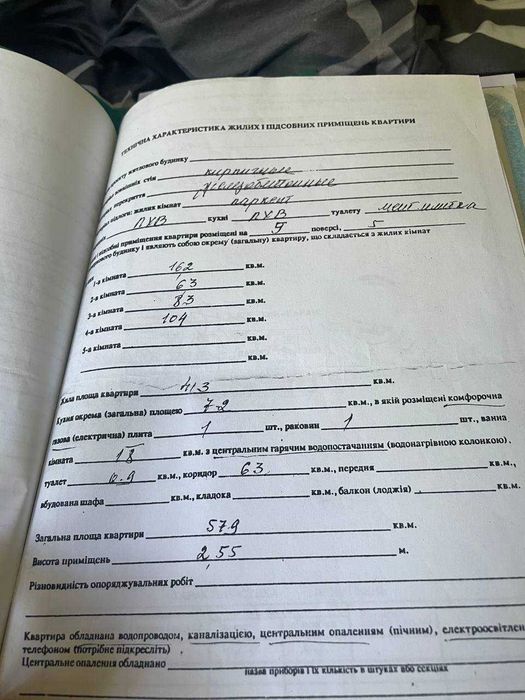 ТЕХНІЧНА ХАРАКТЕРИСТИКА ЖИЛИХ І ПІДСОБНИХ ПРИМІЩЕНЬ КВАРТИРИ
проекту житлового будинку
зовнішніх стін кирпичные
перекриття железобетонные
підлоги: жилих кімнат паркет
ПХВ кухні ПХВ туалету мет. плитка
підсобні приміщення квартири розміщені на 9 поверсі, 5
будинку і являють собою окрему (загальну) квартиру, що складається з жилих кімнат
1-а кімната 16,2 кв.м.
2-а кімната 6,3 кв.м.
3-а кімната 8,3 кв.м.
4-а кімната 10,4 кв.м.
5-а кімната кв.м.
кв.м.
Жила площа квартири 41,3 кв.м.
Кухня окрема (загальна) площею 7,2 кв.м., в якій розміщені комфорочна
газова (електрична) плита 1 шт., раковин 1 шт., ванна
кімната 1,8 кв.м. з центральним гарячим водопостачанням (водонагрівною колонкою).
туалет 0,9 кв.м., коридор 6,3 кв.м., передня кв.м.,
вбудована шафа кв.м., кладова кв.м., балкон (лоджія) кв.м.
Загальна площа квартири 57,9 кв.м.
Висота приміщень 2,55 м.
Різновидність опоряджувальних робіт
Квартира обладнана водопроводом, каналізацією, центральним опаленням (пічним), електроосвітлен
телефоном (потрібне підкреслить)
Центральне опалення обладнано
назва приборів і їх кількість в штуках або секціях